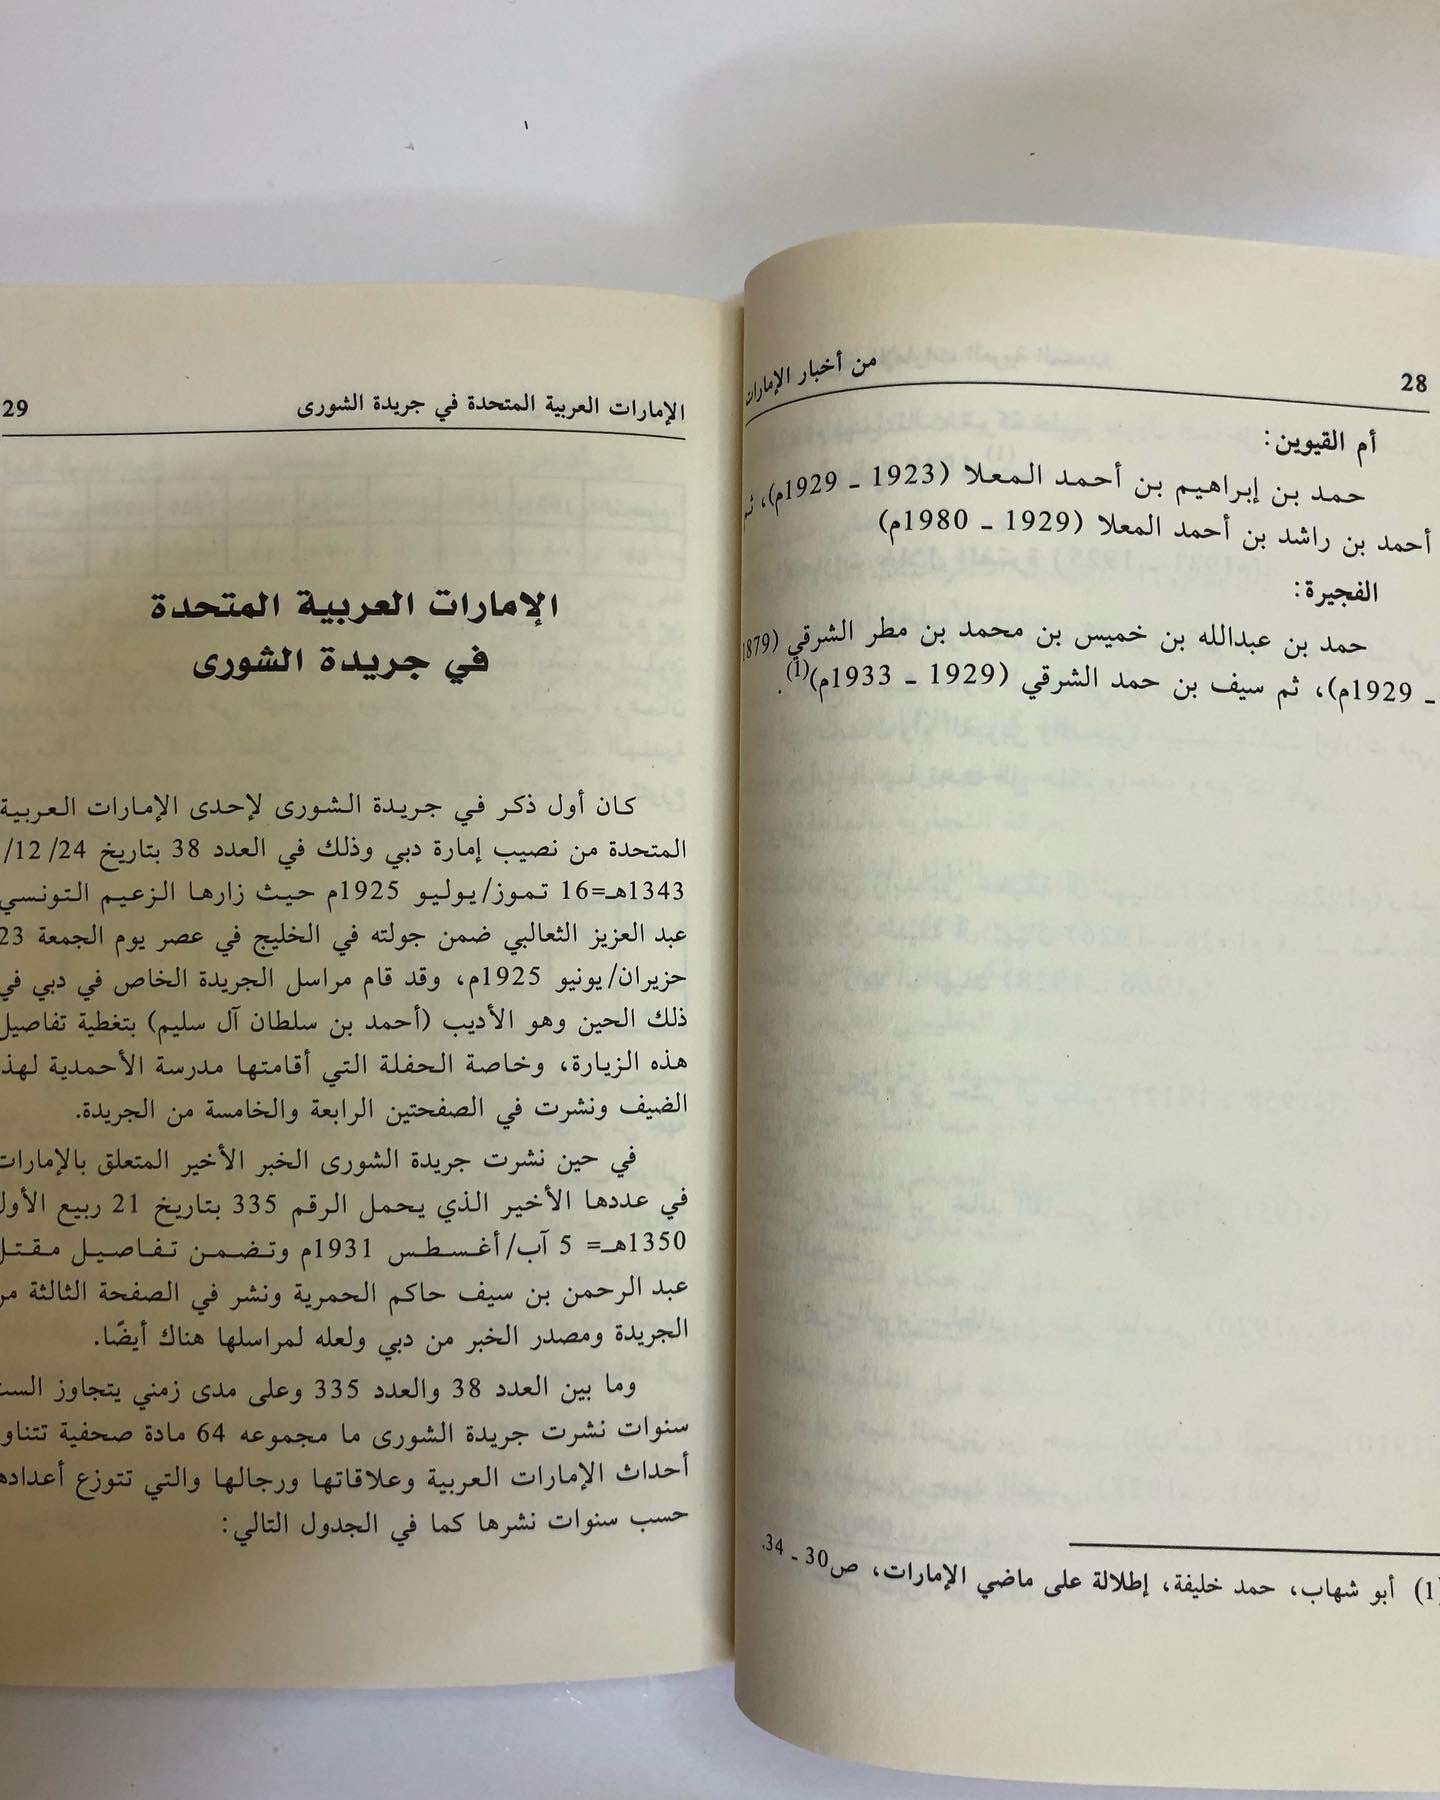 28
من أخبار الإمارات
أم القيوين:
حمد بن إبراهيم بن أحمد المعلا (1923 ـ 1929م)، ثم
أحمد بن راشد بن أحمد المعلا (1929 ـ 1980م)
الفجيرة:
حمد بن عبدالله بن خميس بن محمد بن مطر الشرقي (1879
ـ 1929م)، ثم سيف بن حمد الشرقي (1929 ـ 1933م)(1).
(1) أبو شهاب، حمد خليفة، إطلالة على ماضي الإمارات، ص30 ـ 34.
الإمارات العربية المتحدة في جريدة الشورى
29
الإمارات العربية المتحدة
في جريدة الشورى
كان أول ذكر في جريدة الشورى لإحدى الإمارات العربية
المتحدة من نصيب إمارة دبي وذلك في العدد 38 بتاريخ 24/ 12/
1343هـ=16 تموز/يوليو 1925م حيث زارها الزعيم التونسي
عبد العزيز الثعالبي ضمن جولته في الخليج في عصر يوم الجمعة 23
حزيران/يونيو 1925م، وقد قام مراسل الجريدة الخاص في دبي في
ذلك الحين وهو الأديب (أحمد بن سلطان آل سليم) بتغطية تفاصيل
هذه الزيارة، وخاصة الحفلة التي أقامتها مدرسة الأحمدية لهذا
الضيف ونشرت في الصفحتين الرابعة والخامسة من الجريدة.
في حين نشرت جريدة الشورى الخبر الأخير المتعلق بالإمارات
في عددها الأخير الذي يحمل الرقم 335 بتاريخ 21 ربيع الأول
1350هـ= 5 آب/أغسطس 1931م وتضمن تفاصيل مقتل
عبد الرحمن بن سيف حاكم الحمرية ونشر في الصفحة الثالثة من
الجريدة ومصدر الخبر من دبي ولعله لمراسلها هناك أيضًا.
وما بين العدد 38 والعدد 335 وعلى مدى زمني يتجاوز الست
سنوات نشرت جريدة الشورى ما مجموعه 64 مادة صحفية تتناول
أحداث الإمارات العربية وعلاقاتها ورجالها والتي تتوزع أعدادها
حسب سنوات نشرها كما في الجدول التالي: